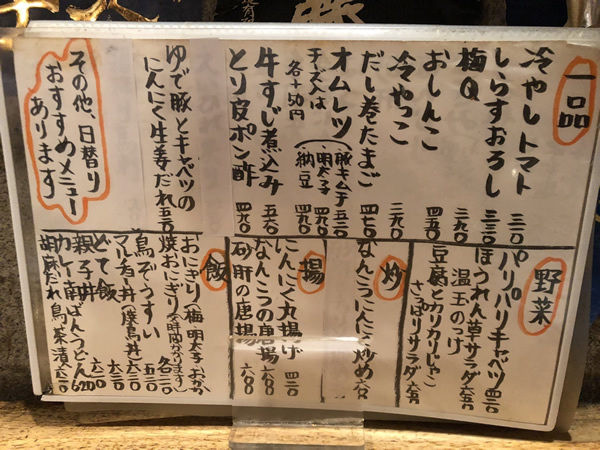 一品
冷やしトマト 三二〇
しらすおろし 三三〇
梅Q 三九〇
おしんこ 四五〇
冷やっこ 三九〇
だし巻たまご 四七〇
オムレツ（豚キムチ 五二〇
明太子 四九〇
納豆 四九〇
チーズ入は
各+50円
牛すじ煮込み 五六〇
とり皮ポン酢 四九〇
ゆで豚とキャベツの
にんにく生姜だれ 五二〇
その他、日替り
おすすめメニュー
あります
野菜
パリパリキャベツ 四二〇
ほうれん草サラダ 六五〇
温玉のっけ
豆腐とカリカリじゃこ
さっぱりサラダ 六五〇
炒
なんこつにんにく炒め 六〇〇
揚
にんにく丸揚げ 四二〇
なんこつの唐揚 六〇〇
砂肝の唐揚 六〇〇
飯
おにぎり（梅・明太子・おかか）
焼おにぎり（お時間かかります） 各二二〇
鳥ぞうすい 五三〇
マルチョー丼（豚鳥丼） 六五〇
とて飯
親子丼
カレー南ばんうどん 620
胡麻だれ鳥茶漬